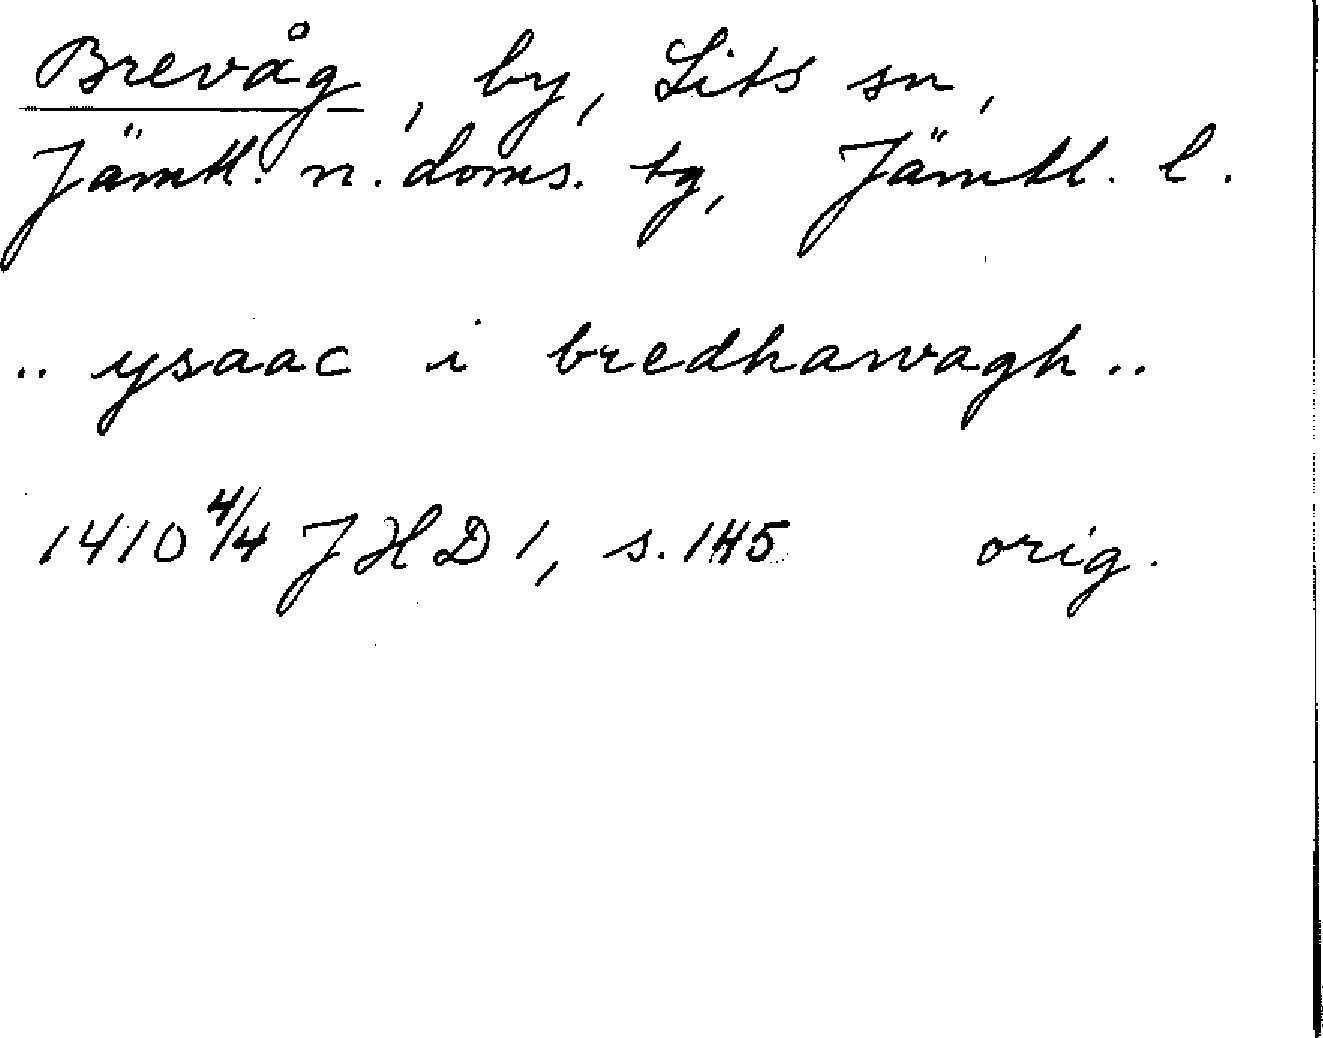 Brevåg, by, Lits sn,
Jämtl. n. doms. tg, Jämtl. l.
.. ysaac i bredhawagh ..
1410 4/4 JHD 1, s. 145 orig.